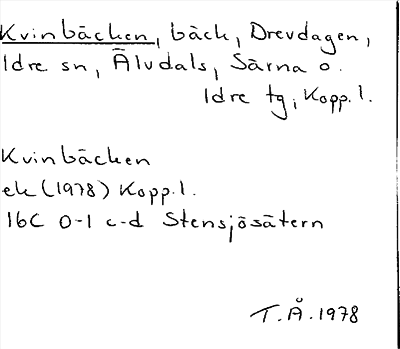 Kvinbäcken, bäck, Drevdagen,
Idre sn, Älvdals, Särna o.
Idre tg, Kopp. l.
Kvinbäcken
ek (1978) Kopp. l.
16C 0-1 c-d Stensjösätern
T. Å. 1978